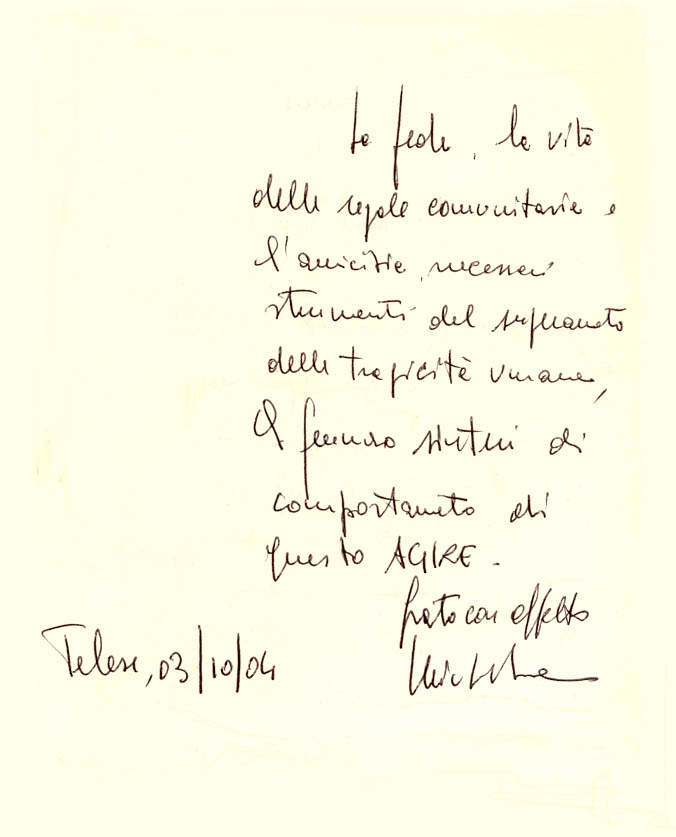 La fede, la vita
delle regole comunitarie e
l'amicizia, necessari
strumenti del superamento
della tragicità umana,
si fanno sintesi di
comportamento di
questo AGIRE.
grato con affetto
Telese, 03/10/04